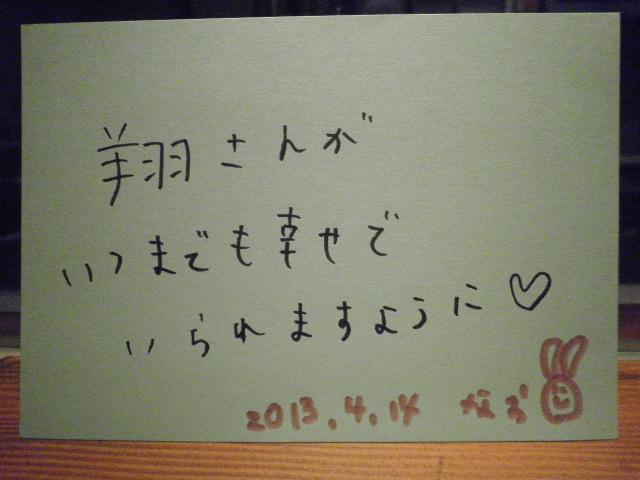 翔さんが
いつまでも幸せで
いられますように♡
2013.4.14 なお